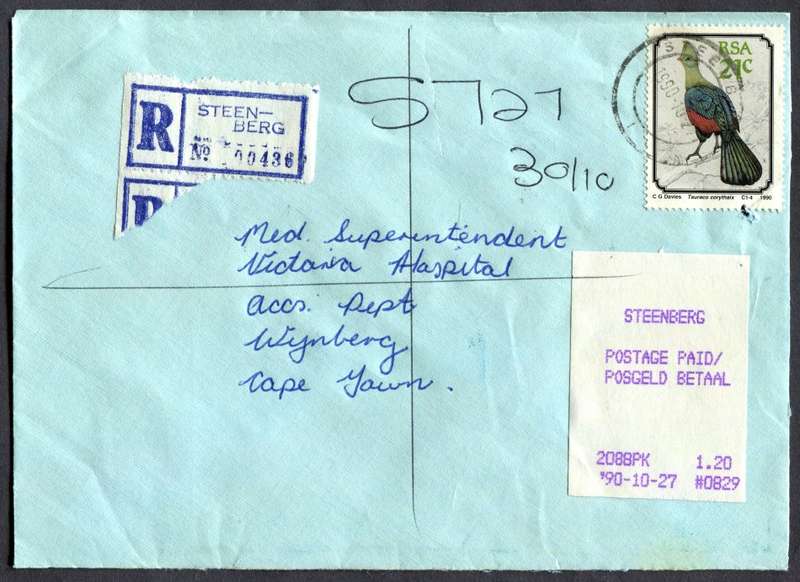 R
STEEN-
BERG
No 004369
R
5727
30/10
RSA
21c
C G Davies Tauraco corythaix C1-4 1990
Med. Superintendent
Victoria Hospital
Accs. Dept
Wynberg
Cape Town.
STEENBERG
POSTAGE PAID/
POSGELD BETAAL
2088PK 1.20
'90-10-27 #0829